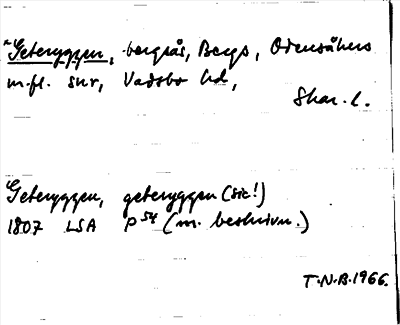 Geteryggen, bergsås, Bergs, Odensåkers
m.fl. snr, Vadsbo hd,
Skar. l.
Geteryggen, geteryggen (sic!)
1807 LSA P 54 (m. beskrivn.)
T.N.B. 1966.